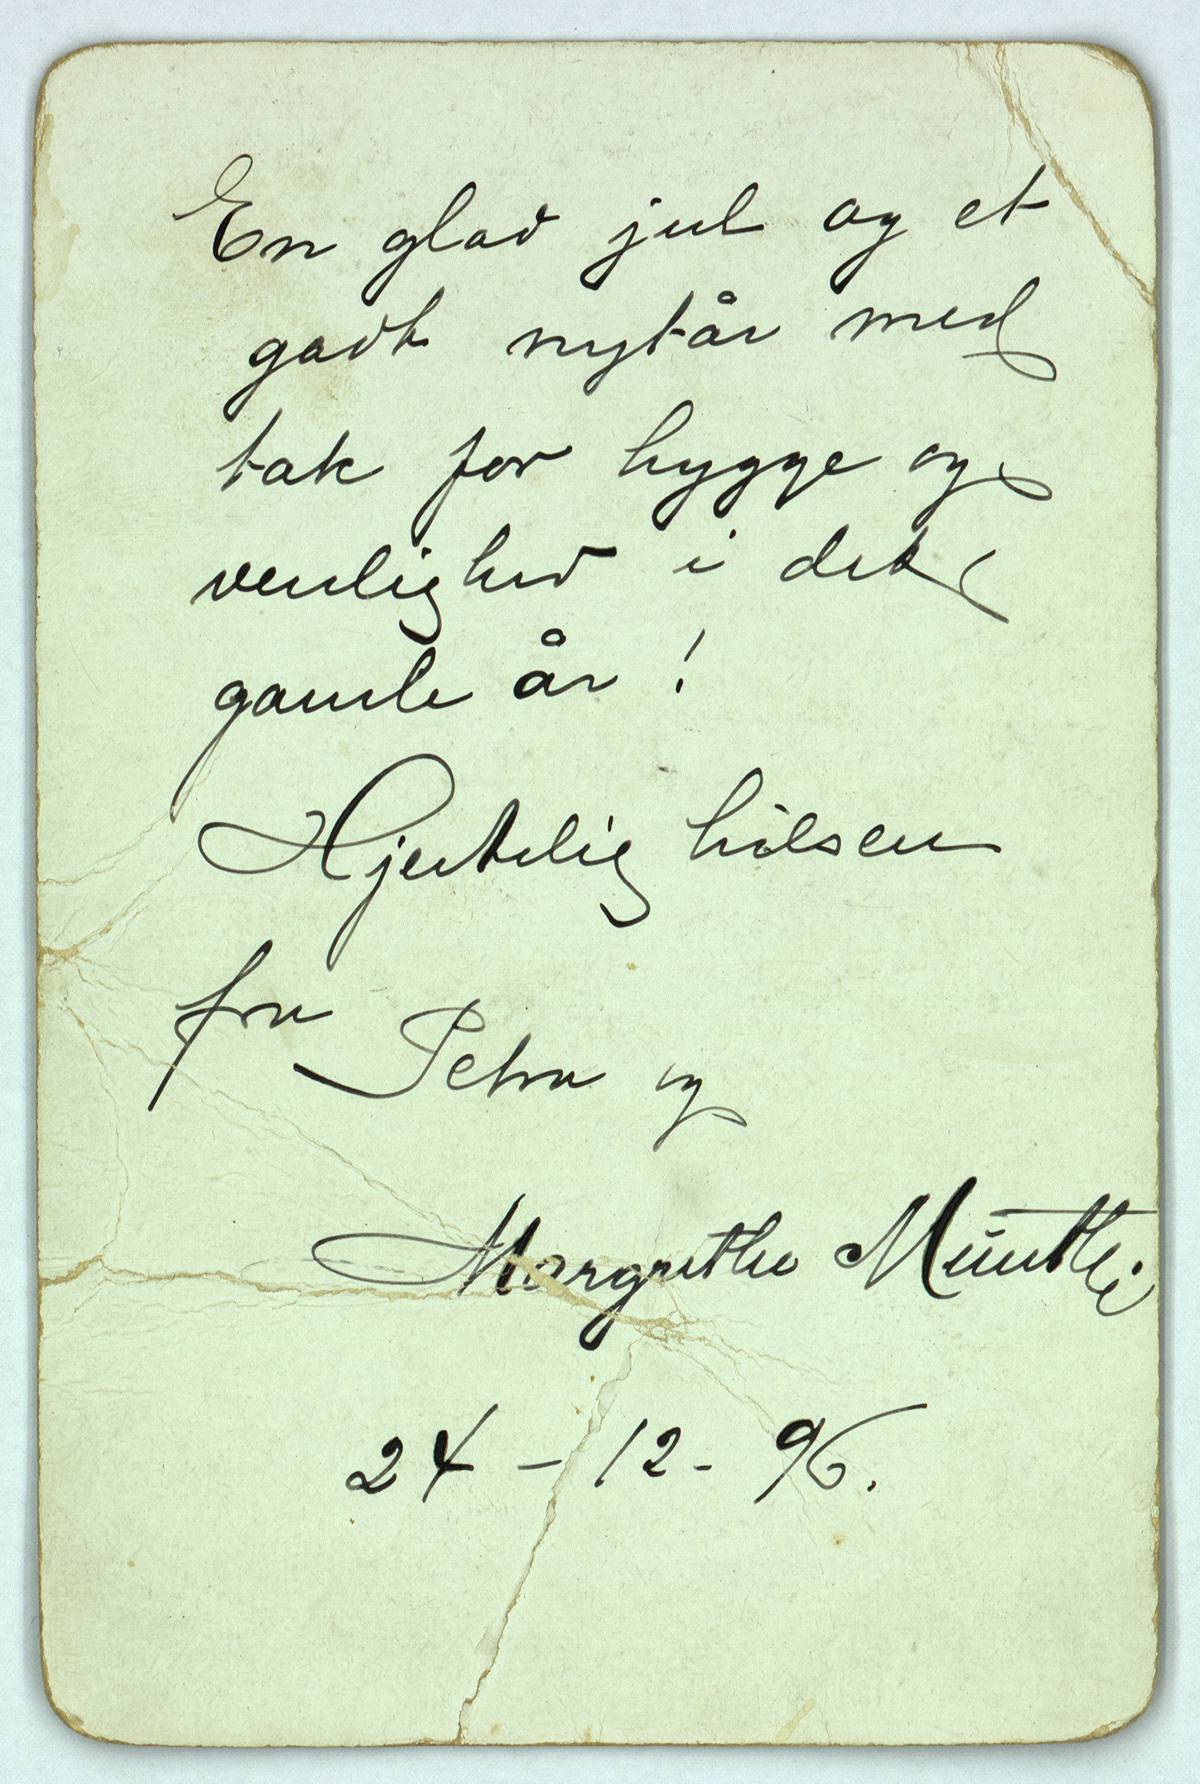 En glad jul og et
godt nytår med
tak for hygge og
venlighed i det
gamle år!
Hjertelig hilsen
fra Petra og
Margrethe Münther
24 - 12 - 96.